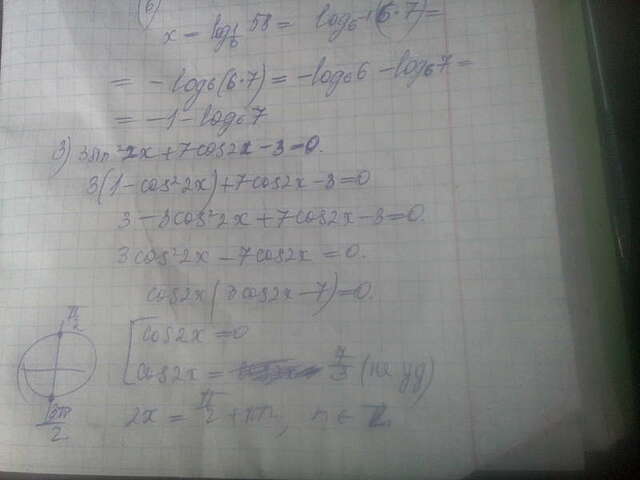 б)
x = log_{1/6} 58 = log_{6^{-1}} (6·7) =
= -log_6 (6·7) = -log_6 6 - log_6 7 =
= -1 - log_6 7
3) 3sin² 2x + 7cos2x - 3 = 0.
3(1 - cos² 2x) + 7cos2x - 3 = 0
3 - 3cos² 2x + 7cos2x - 3 = 0.
3cos² 2x - 7cos2x = 0.
cos2x (3cos2x - 7) = 0.
π/2
cos2x = 0
cos2x = 7/3 (не уд)
3π/2
2x = π/2 + πn, n ∈ Z